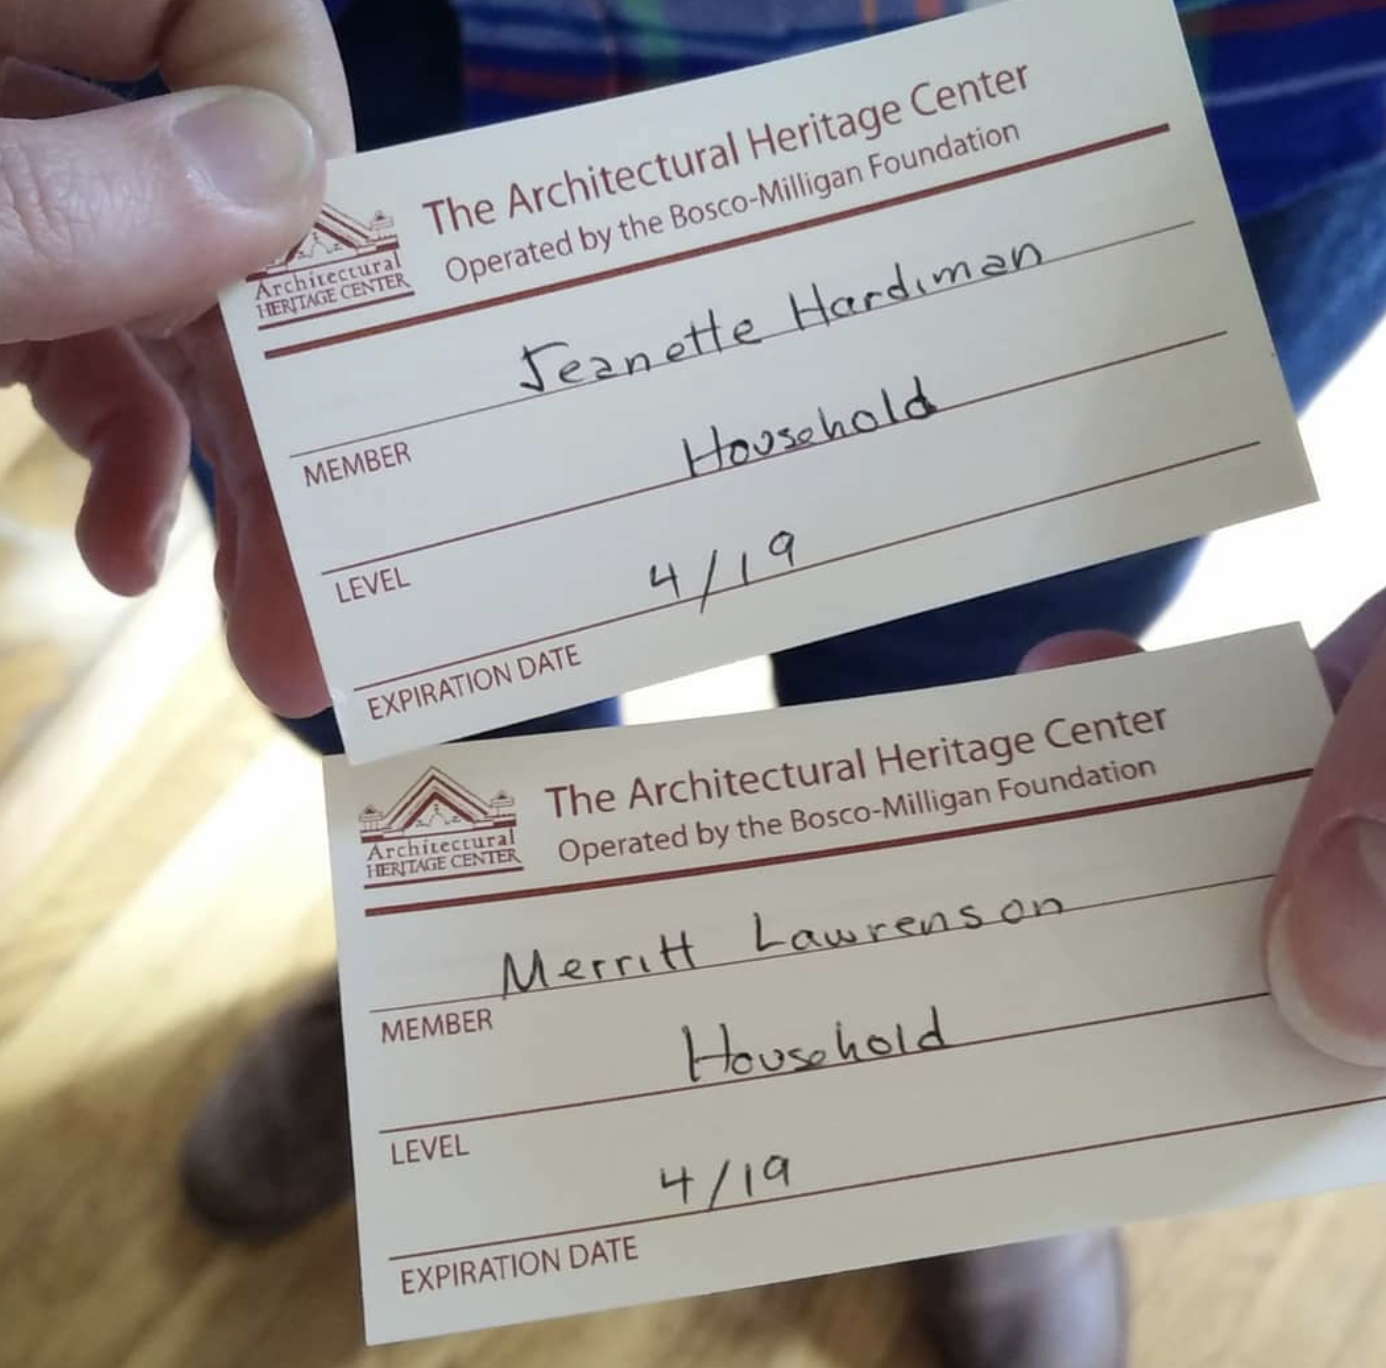 The Architectural Heritage Center
Operated by the Bosco-Milligan Foundation
Architectural
HERITAGE CENTER
Jeanette Hardiman
MEMBER
Household
LEVEL
4/19
EXPIRATION DATE
The Architectural Heritage Center
Operated by the Bosco-Milligan Foundation
Architectural
HERITAGE CENTER
Merritt Lawrenson
MEMBER
Household
LEVEL
4/19
EXPIRATION DATE